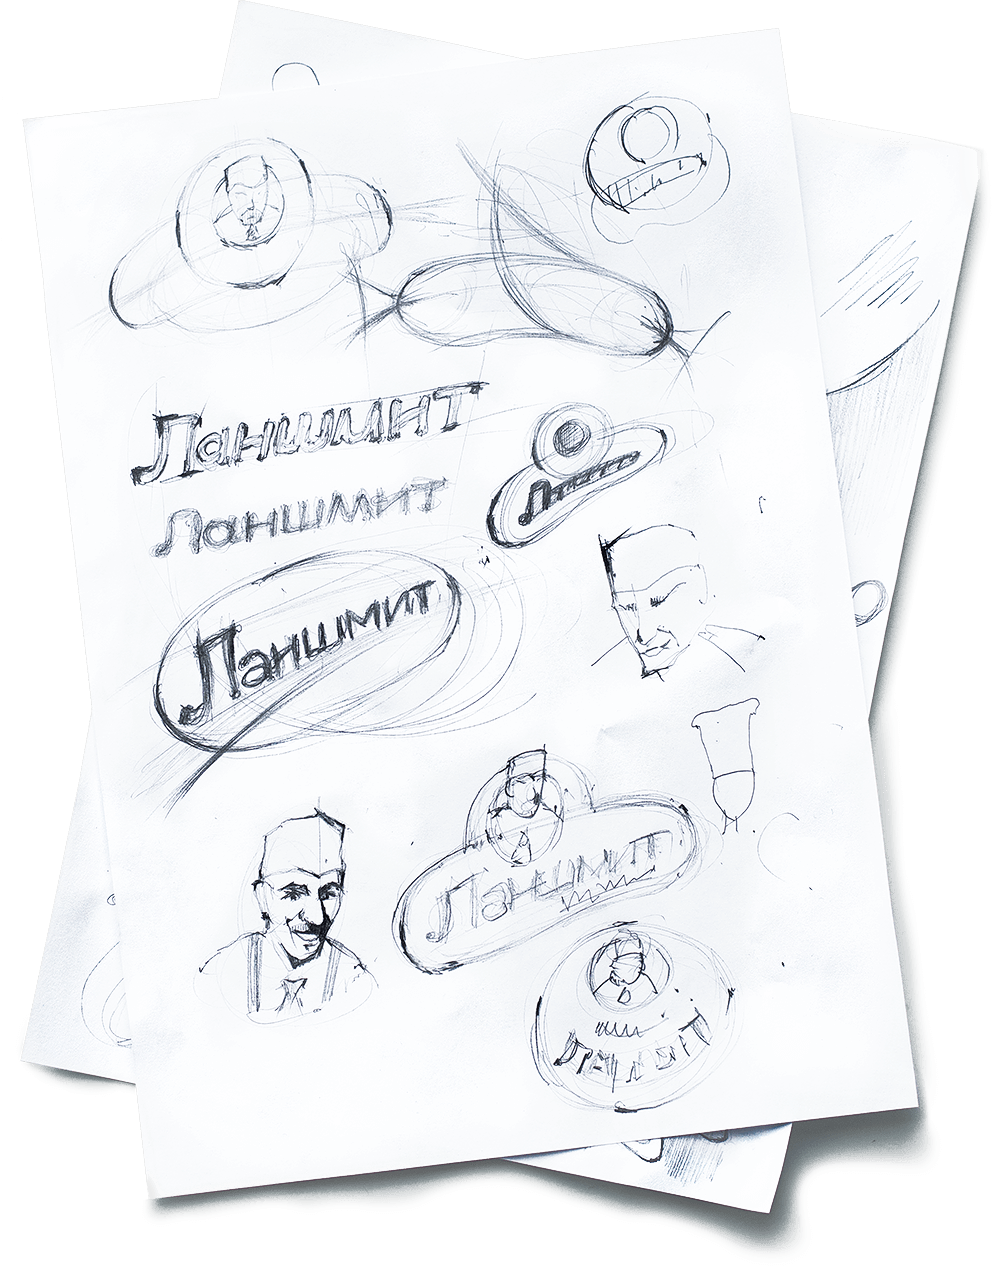 Ланшмит
Ланшмит
Ланшмит
Ланшмит